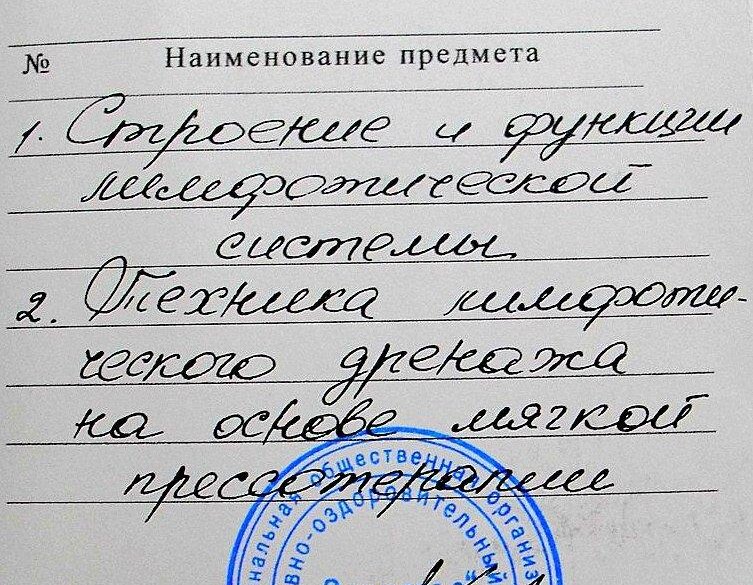 № Наименование предмета
1. Строение и функции
лимфотической
системы
2. Техника лимфоти-
ческого дренажа
на основе мягкой
прессотерапии
нальная общественная организ
вно-оздоровительный